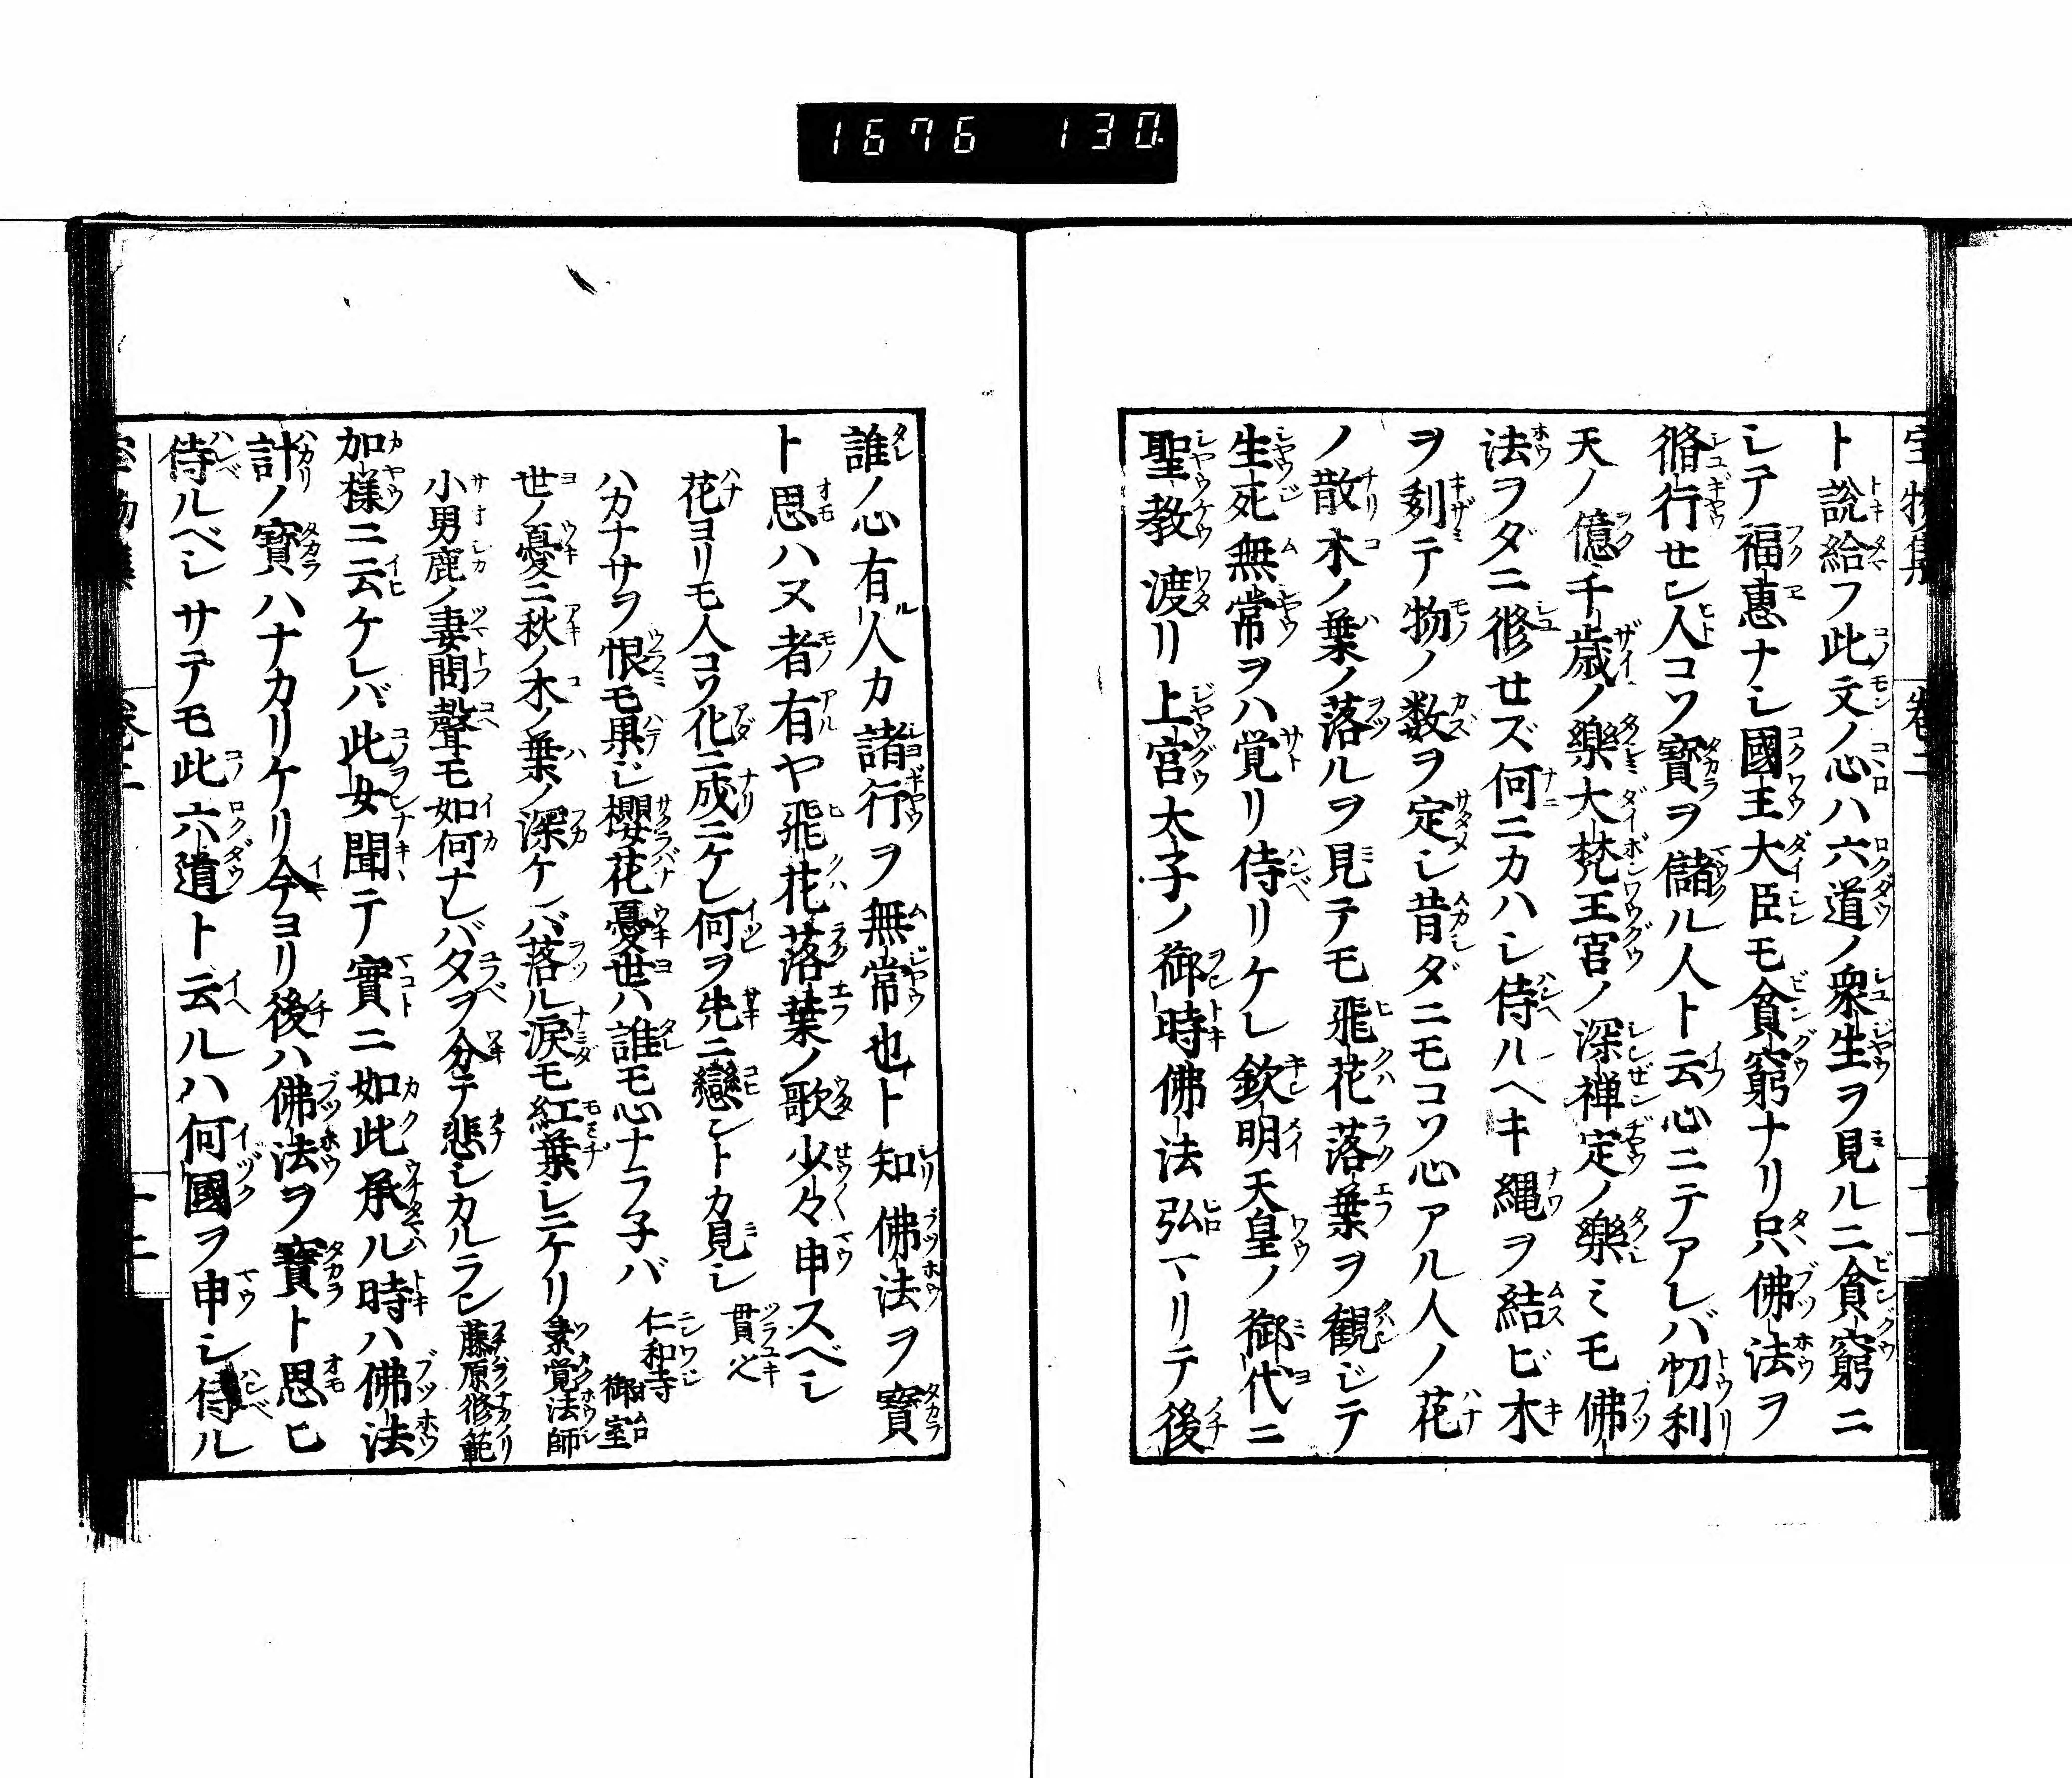 1676 130
ト説給フ此文ノ心ハ六道ノ衆生ヲ見ルニ貧窮ニ
シテ福惠ナシ國王大臣モ貧窮ナリ只佛法ヲ
脩行せシ人コソ寳ヲ儲ル人ト云心ニテアレバ忉利
天ノ億千歳ノ樂大梵王宮ノ深禅定ノ樂ミモ佛
法ヲダニ修せズ何ニカハシ侍ルヘキ縄ヲ結ビ木
ヲ刻テ物ノ数ヲ定シ昔ダニモコソ心アル人ノ花
ノ散木ノ葉ノ落ルヲ見テモ飛花落葉ヲ観ジテ
生死無常ヲハ覚リ侍リケレ欽明天皇ノ御代ニ
聖教渡リ上宮太子ノ御時佛法弘マリテ後
誰ノ心有ル人カ諸行ヲ無常也ト知リ佛法ヲ寳
ト思ハヌ者有ヤ飛花落葉ノ歌少々申スベシ
花ヨリモ人コソ化ニ成ニケレ何ヲ先ニ戀ントカ見シ 貫之
ハカナサヲ恨モ果ジ櫻花憂世ハ誰モ心ナラ子バ 仁和寺御室
世ノ憂ニ秋ノ木ノ葉ノ深ケレバ落ル涙モ紅葉シニケリ 素覚法師
小男鹿ノ妻問聲モ如何ナレバタヲ分テ悲シカルラン 藤原修範
加様ニ云ケレバ此女聞テ實ニ如此承ル時ハ佛法
計ノ寳ハナカリケリ今ヨリ後ハ佛法ヲ寳ト思ヒ
侍ルベシサテモ此六道ト云ルハ何國ヲ申シ侍ル